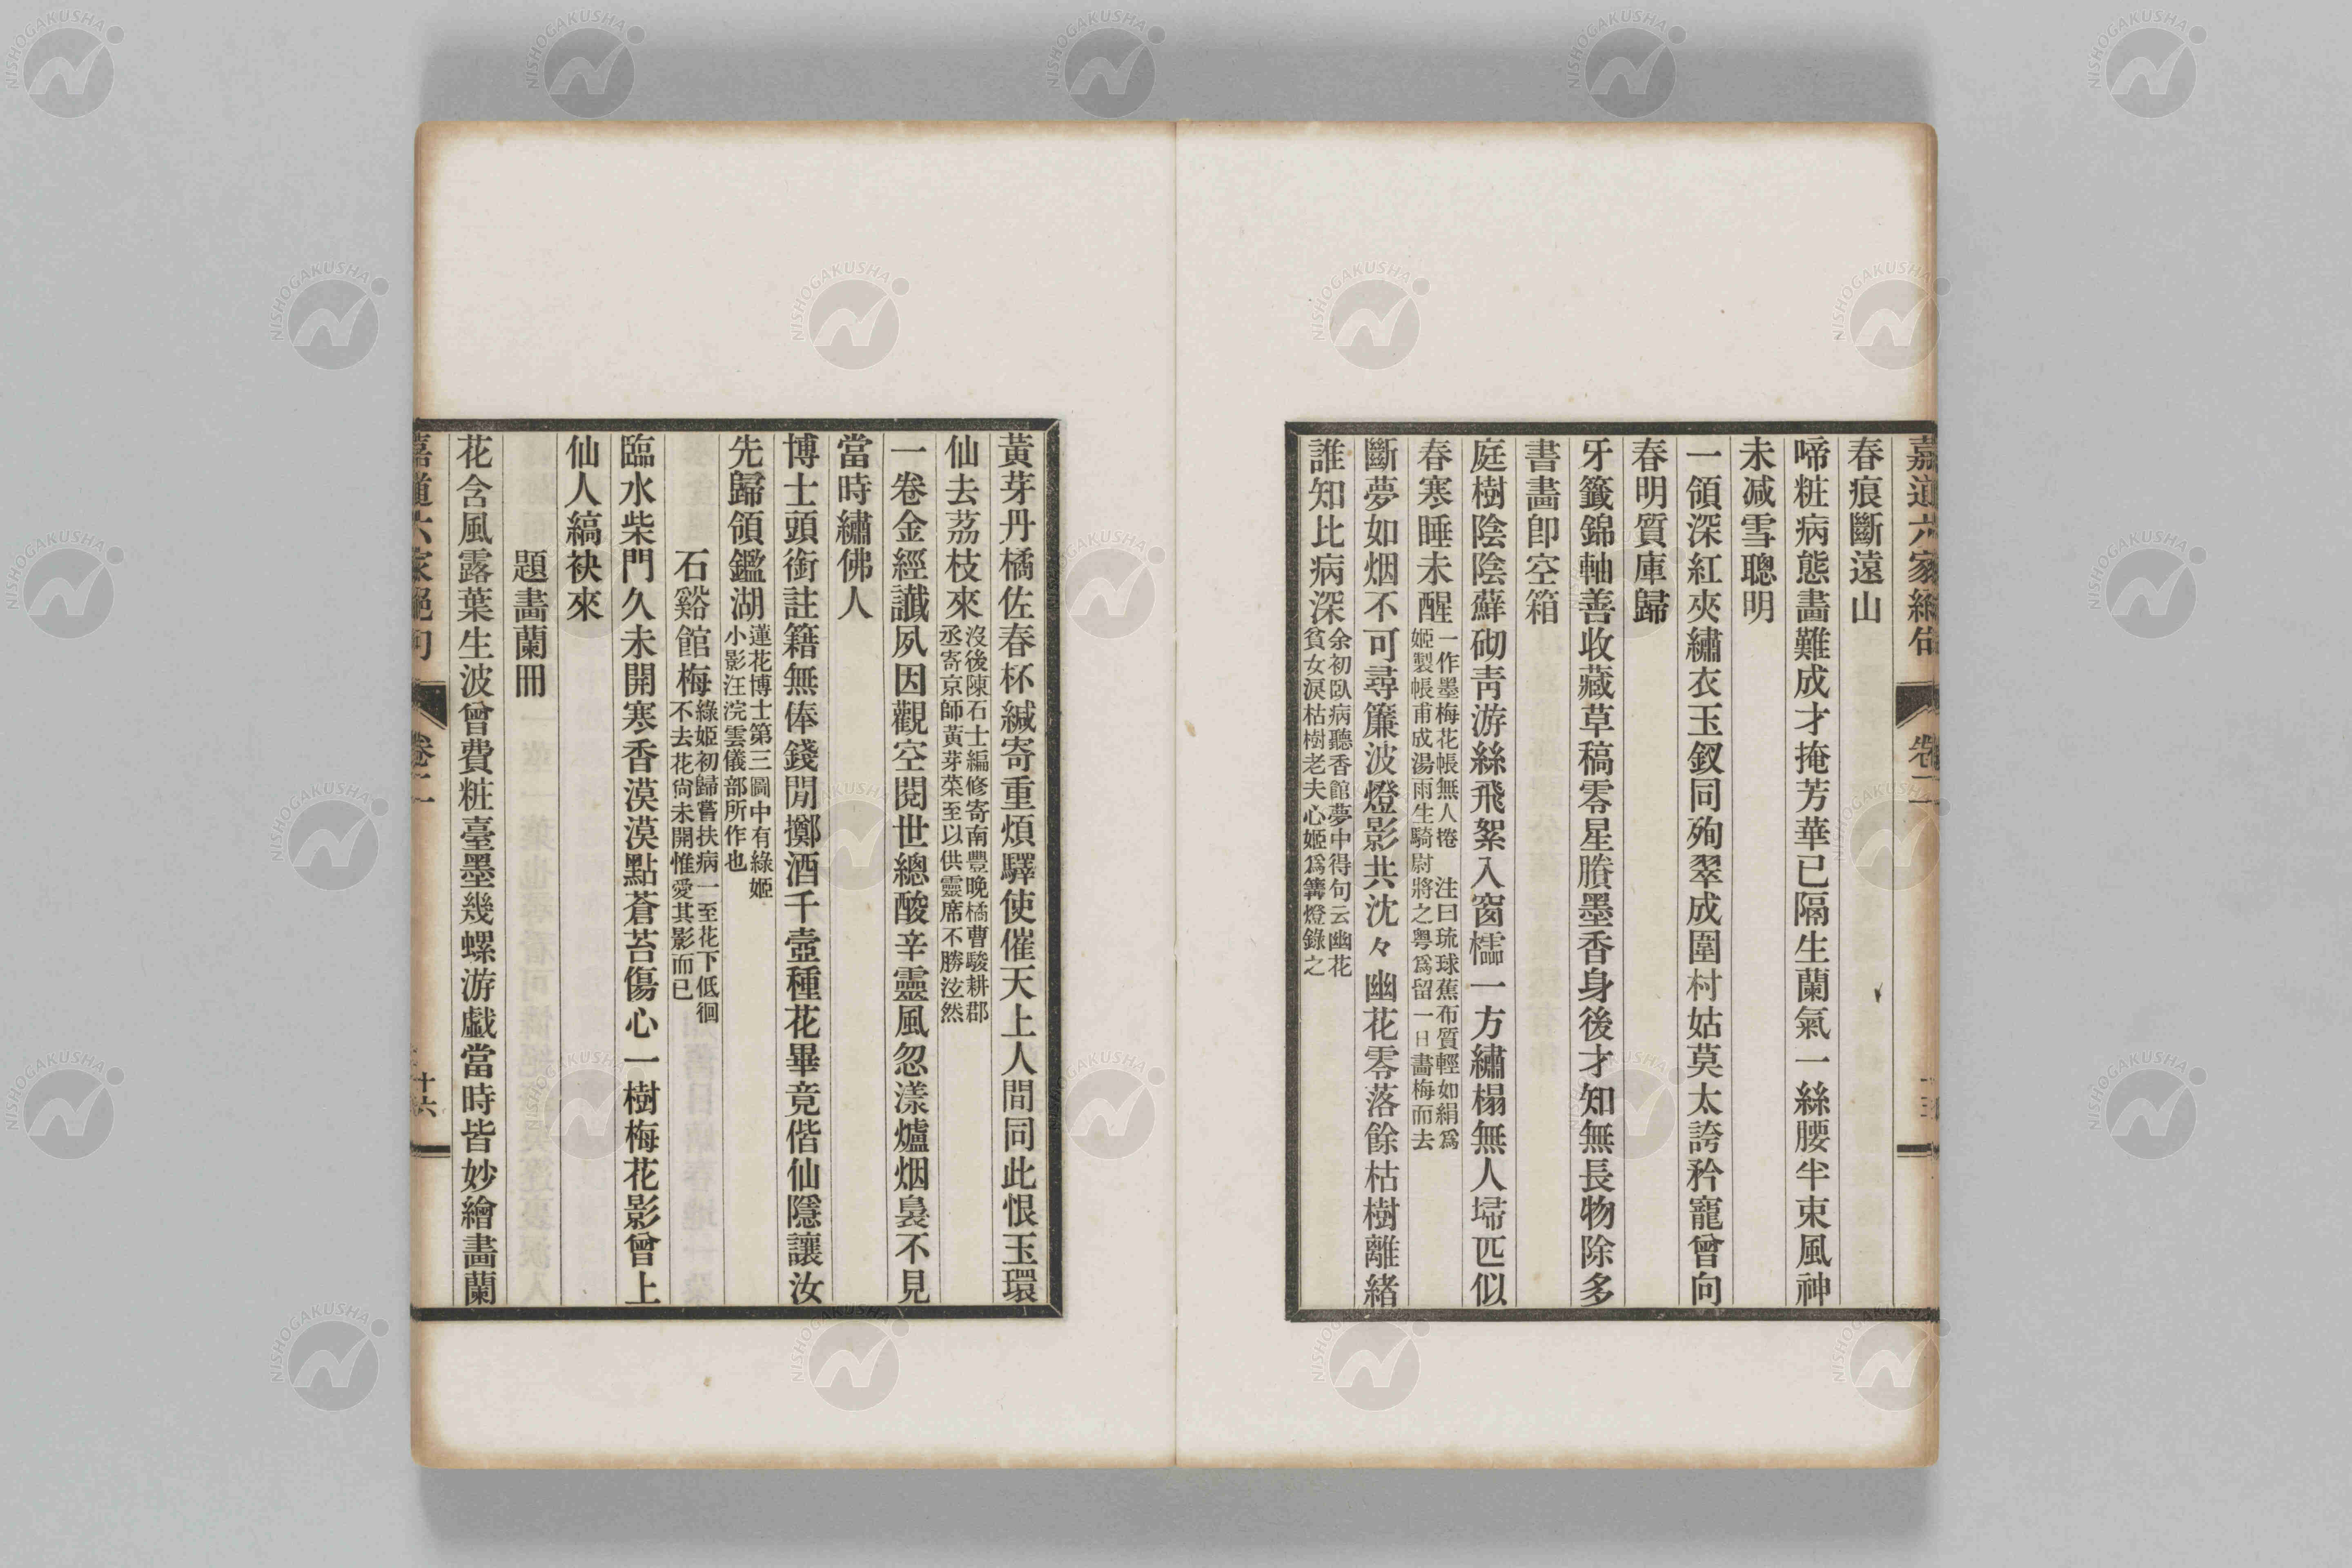 嘉道六家絕句 卷二
春痕斷遠山
啼粧病態畫難成才掩芳華已隔生蘭氣一絲腰半束風神
未減雪聰明
一領深紅夾繡衣玉釵同殉翠成圍村姑莫太誇矜寵曾向
春明質庫歸
牙籤錦軸善收藏草稿零星賸墨香身後才知無長物除多
書畫卽空箱
庭樹陰陰蘚砌靑游絲飛絮入窗櫺一方繡榻無人埽匹似
春寒睡未醒
一作墨梅花帳無人捲 注曰琉球蕉布質輕如絹爲
姬製帳甫成湯雨生騎尉將之粵爲留一日畫梅而去
斷夢如烟不可尋簾波燈影共沈々幽花零落餘枯樹離緒
誰知比病深
余初臥病聽香館夢中得句云幽花
貧女淚枯樹老夫心姬爲篝燈錄之
黃芽丹橘佐春杯緘寄重煩驛使催天上人間同此恨玉環
仙去荔枝來
沒後陳石士編修寄南豐晚橘曹駿耕郡
丞寄京師黃芽菜至以供靈席不勝泫然
一卷金經讖夙因觀空閱世總酸辛靈風忽漾爐烟裊不見
當時繡佛人
博士頭銜註籍無俸錢閒擲酒千壺種花畢竟偕仙隱讓汝
先歸領鑑湖
蓮花博士第三圖中有綠姬
小影汪浣雲儀部所作也
石谿館梅
綠姬初歸嘗扶病一至花下低徊
不去花尙未開惟愛其影而已
臨水柴門久未開寒香漠漠點蒼苔傷心一樹梅花影曾上
仙人縞袂來
題畫蘭冊
花含風露葉生波曾費粧臺墨幾螺游戲當時皆妙繪畫蘭
嘉道六家絕句 卷二 十六
NISHOGAKUSHA